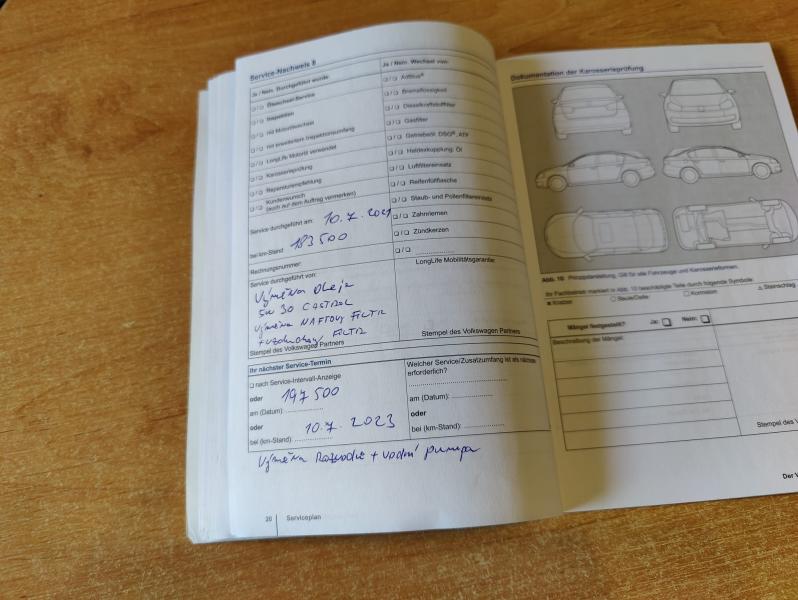 Service-Nachweis 8
Ja / Nein, Durchgeführt wurde:
❑ / ❑ Ölwechsel-Service
❑ / ❑ Inspektion
❑ / ❑ mit Motorölwechsel
❑ / ❑ mit erweitertem Inspektionsumfang
❑ / ❑ LongLife Motoröl verwendet
❑ / ❑ Karosserieprüfung
❑ / ❑ Reparaturempfehlung
❑ / ❑ Kundenwunsch
(auch auf dem Auftrag vermerken)
Service durchgeführt am: 10.7.2021
bei km-Stand: 183 500
Rechnungsnummer:
Service durchgeführt von:
Výměna oleje
5W 30 CASTROL
výměna NAFTOVÝ FILTR
+ vzduchový FILTR
Stempel des Volkswagen Partners
Ja / Nein, Wechsel von:
❑ / ❑ AdBlue®
❑ / ❑ Bremsflüssigkeit
❑ / ❑ Dieselkraftstofffilter
❑ / ❑ Gasfilter
❑ / ❑ Getriebeöl: DSG®, ATF
❑ / ❑ Haldexkupplung: Öl
❑ / ❑ Luftfiltereinsatz
❑ / ❑ Reifenfüllflasche
❑ / ❑ Staub- und Pollenfiltereinsatz
❑ / ❑ Zahnriemen
❑ / ❑ Zündkerzen
❑ / ❑
LongLife Mobilitätsgarantie:
Stempel des Volkswagen Partners
Ihr nächster Service-Termin
❑ nach Service-Intervall-Anzeige
oder 197 500
am (Datum):
oder 10.7.2023
bei (km-Stand):
Welcher Service/Zusatzumfang ist als nächstes
erforderlich?
am (Datum):
oder
bei (km-Stand):
výměna Rozvodů + vodní pumpa
20 Serviceplan
Dokumentation der Karosserieprüfung
Abb. 10 Prinzipdarstellung. Gilt für alle Fahrzeuge und Karosserieformen.
Ihr Fachbetrieb markiert in Abb. 10 beschädigte Teile durch folgende Symbole:
Kratzer ○ Beule/Delle □ Korrosion △ Steinschlag
Mängel festgestellt? Ja: ❑ Nein: ❑
Beschreibung der Mängel:
Stempel des V
Der V